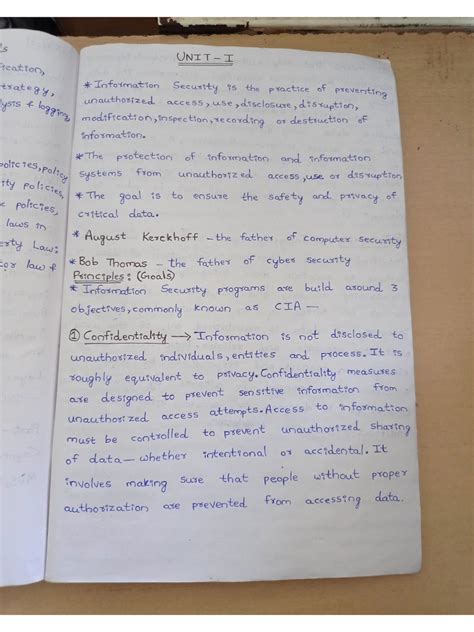 ls
fication,
trategy,
lysis & logging
policies, policy
ity policies,
c policies,
laws in
erty Law:
cor law &
UNIT - I
* Information Security is the practice of preventing
unauthorized access, use, disclosure, disruption,
modification, inspection, recording or destruction of
information.
* The protection of information and information
systems from unauthorized access, use or disruption
* The goal is to ensure the safety and privacy of
critical data.
* August Kerckhoff - the father of computer security
* Bob Thomas - the father of cyber security
Principles: (Goals)
* Information Security programs are build around 3
objectives, commonly known as CIA —
① Confidentiality → Information is not disclosed to
unauthorized individuals, entities and process. It is
roughly equivalent to privacy. Confidentiality measures
are designed to prevent sensitive information from
unauthorized access attempts. Access to information
must be controlled to prevent unauthorized sharing
of data — whether intentional or accidental. It
involves making sure that people without proper
authorization are prevented from accessing data.